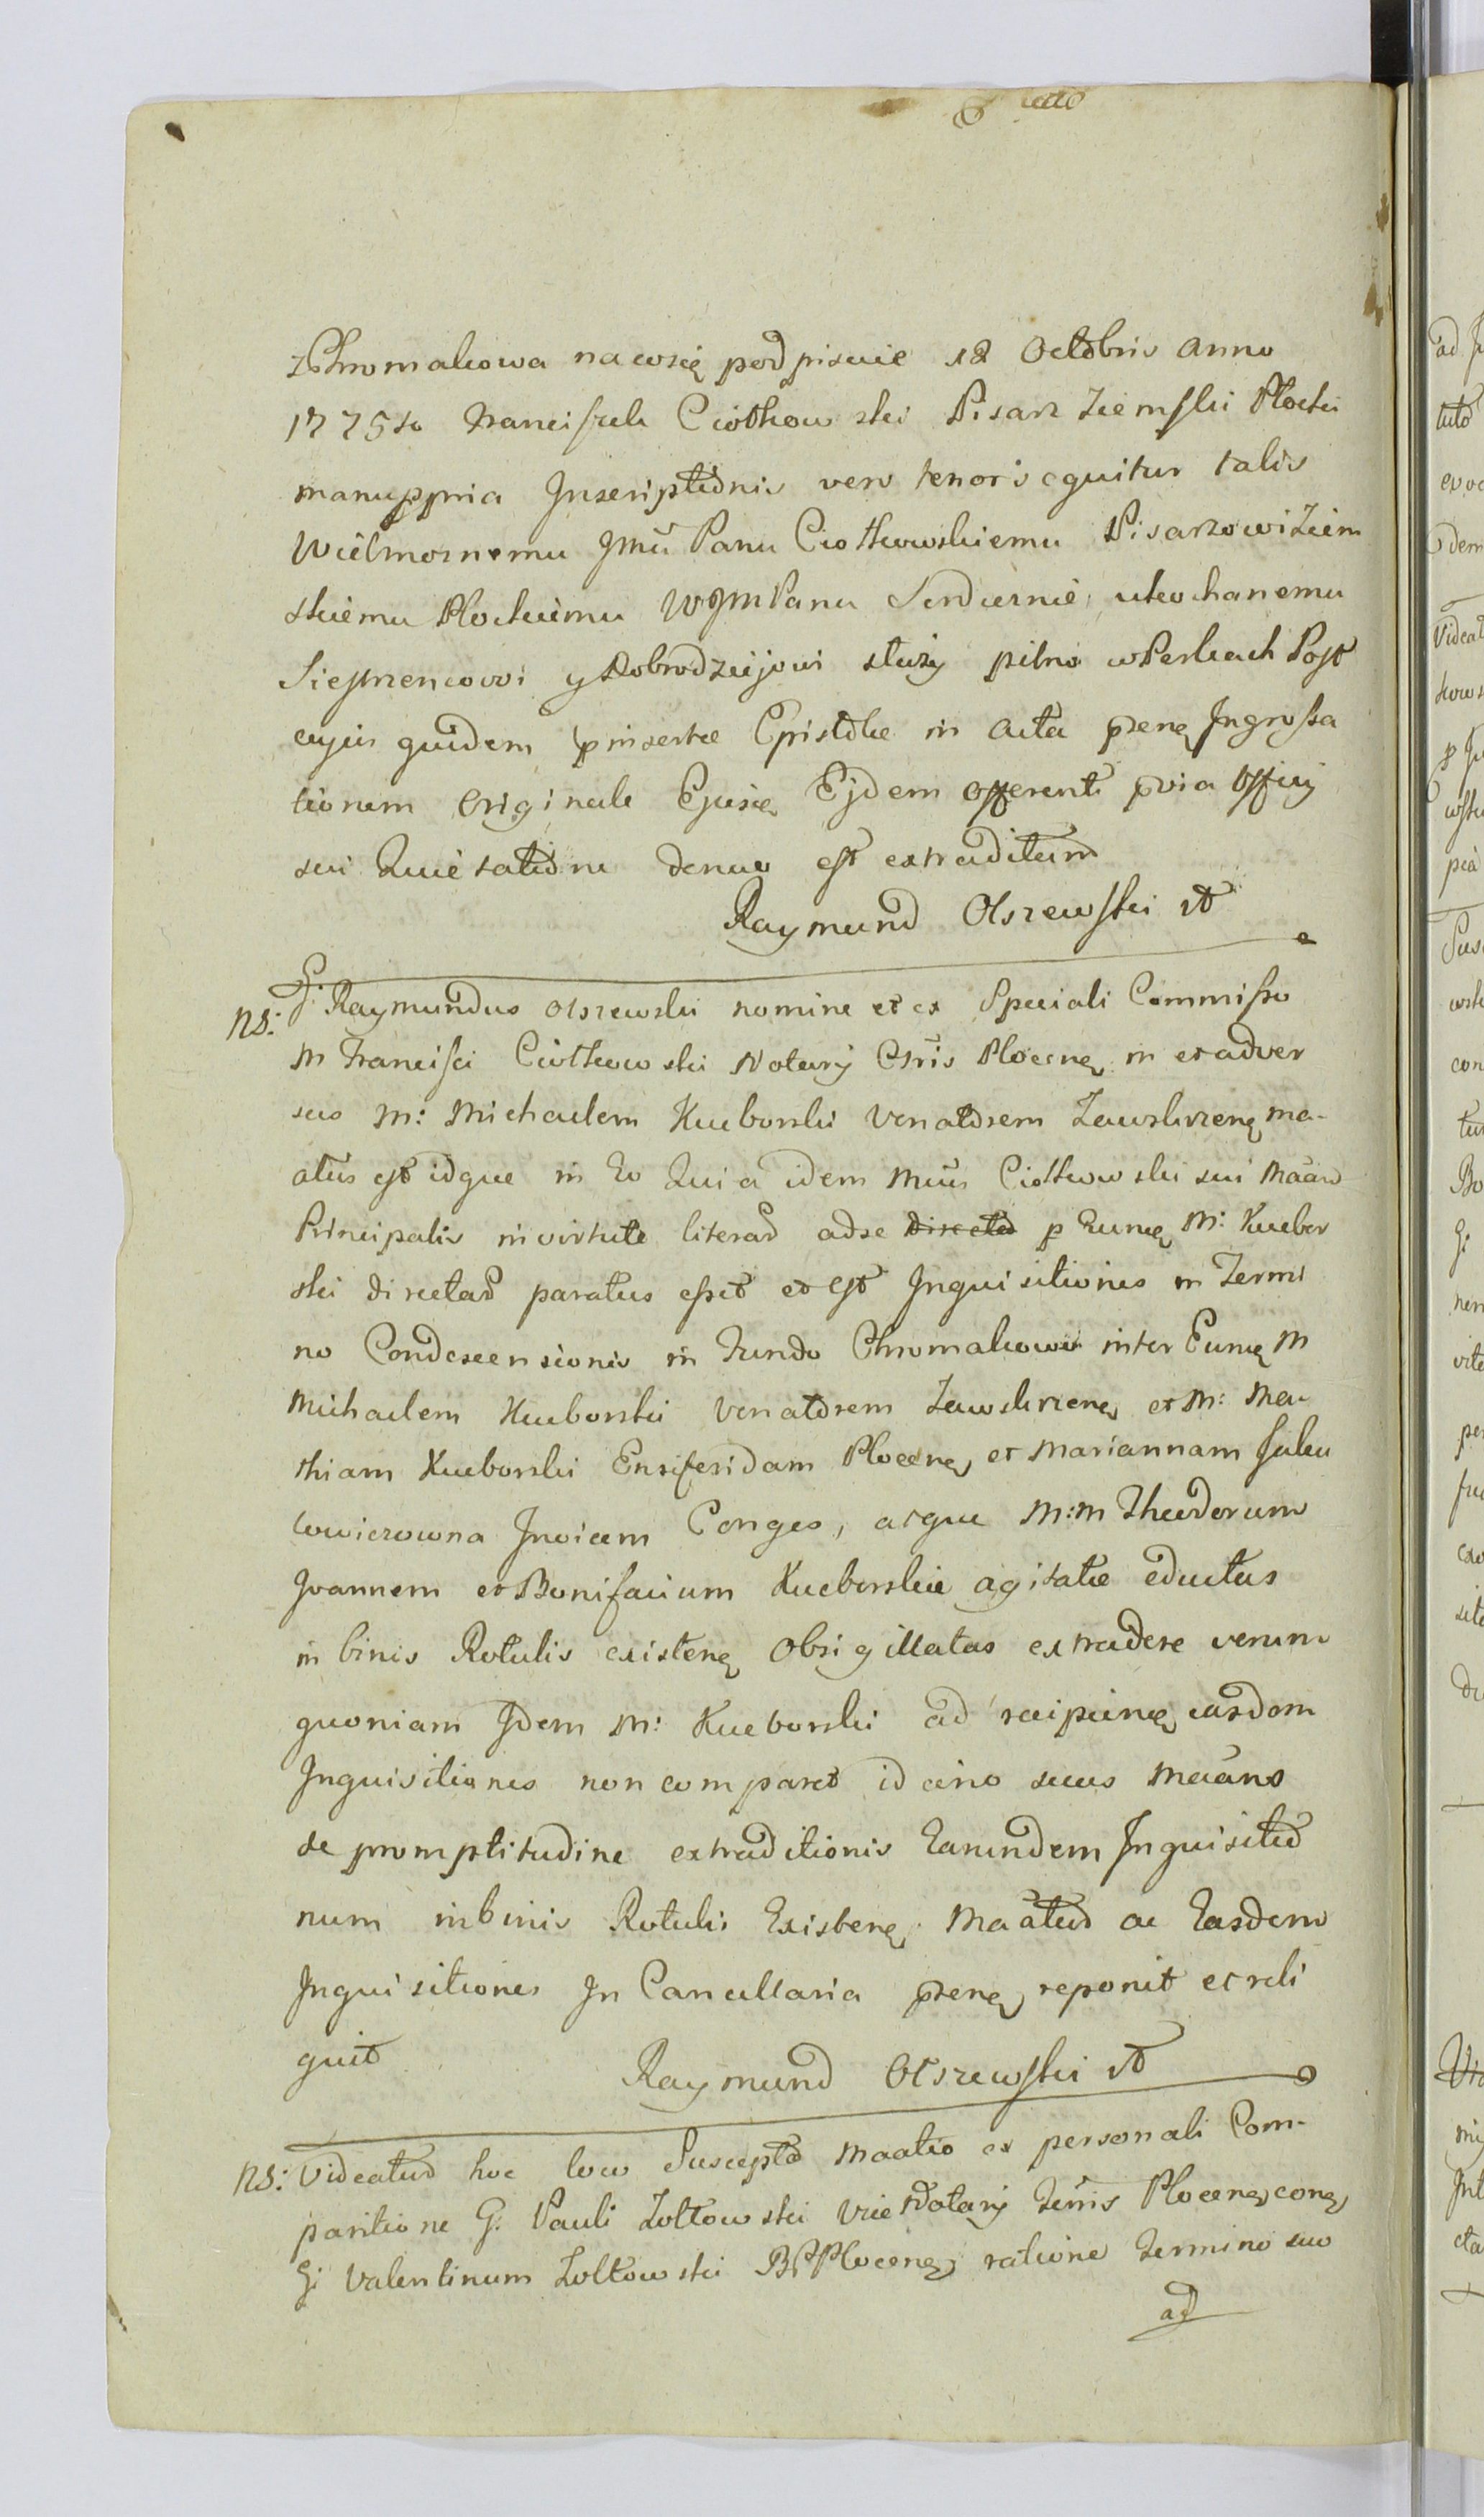 zChromakowa nawsię podpisuie 18 Octobris Anno
1775to Franciszek Ciołkowski Pisarz Ziemski Płocki
manuppria Inscriptionis vero tenor sequitur talis
Wielmoznemu Jmū Panu Ciołkowskiemu Pisarzowi Ziem
skiemu Płockiemu WJMPanu Serdecznie ukochanemu
Siestrzencowi y Dobrodziejowi służy pilno w Perkach Post
cujus quidem pinsertae Epistolae in Acta prꝫntꝫ Ingrossa
tionem Originale Ejusꝫ Ejdem offerenti pvia Officij
sui Quietatione denuo est extraditum
Raymund Olszewski st
G. Raymundus Olszewski nomine et ex Speciali Commisso
ns:
M Francisci Ciołkowski Notarij Cſtris Plocenꝫ in et adver
sus M: Michaelem Kucborski Venatorem Zawskrzenꝫ ma-
atus est idque in Eo Quia idem Mūs Ciołkowski sui Māan
Principalis in virtute literar adse Directar p Eumꝫ M: Kucbor
ski directar paratus esset et est Inquisitiones in Termi
no Condescensionis in Fundo Chromakowo inter Eumꝫ M
Michaelem Kucborski Venatorem Zawskrzenꝫ et M: Ma-
thiam Kucborski Ensiferidam Plocenꝫ et Mariannam
Invicem Conges, atque M:M Theodorum
Joannem et Bonifacium Kucborskie agitatae eductas
in binis Rotulis existenꝫ Obsigillatas extradere verum
quoniam Idem M: Kucborski ad recipienꝫ easdem
Inquisitiones non comparet idcirco suus Māans
de promptitudine extraditionis Earundem Inquisitio
num in binis Rotulis Existenꝫ Māatur ac Easdem
Inquisitiones In Cancellaria prꝫntꝫ reponit et reli
quit
Raymund Olszewski st
ns: Videatur hoc loco Suscepta Maatio ex personali Com-
paritione G. Pauli Zołtowski Vice Notarij Terris Plocenꝫ conꝫ
G: Valentinum Zołtowski BPlocenꝫ ratione Termino suo
ad